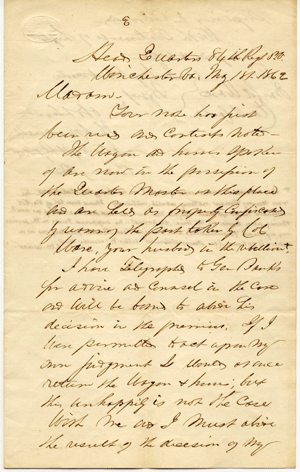 3
Head Quarters 84th Regt P.V.
Winchester Va. May 1st. 1862
Madam—
Your note has just
been recd and contents noted—
The Wagon and horses spoken
of are now in the possession of
the Quarter Master on this place
and are held as property confiscated
by reason of the part taken by Col
Ware, your husband in the rebellion.
I have Telegraphed to Gen Banks
for advice and counsel in the case
and will be bound to abide his
decision in the premises. If I
were permitted to act upon my
own judgment I would at once
return the Wagon & horses; but
this unhappily is not the case
with me and I must abide
the result of the decision of my